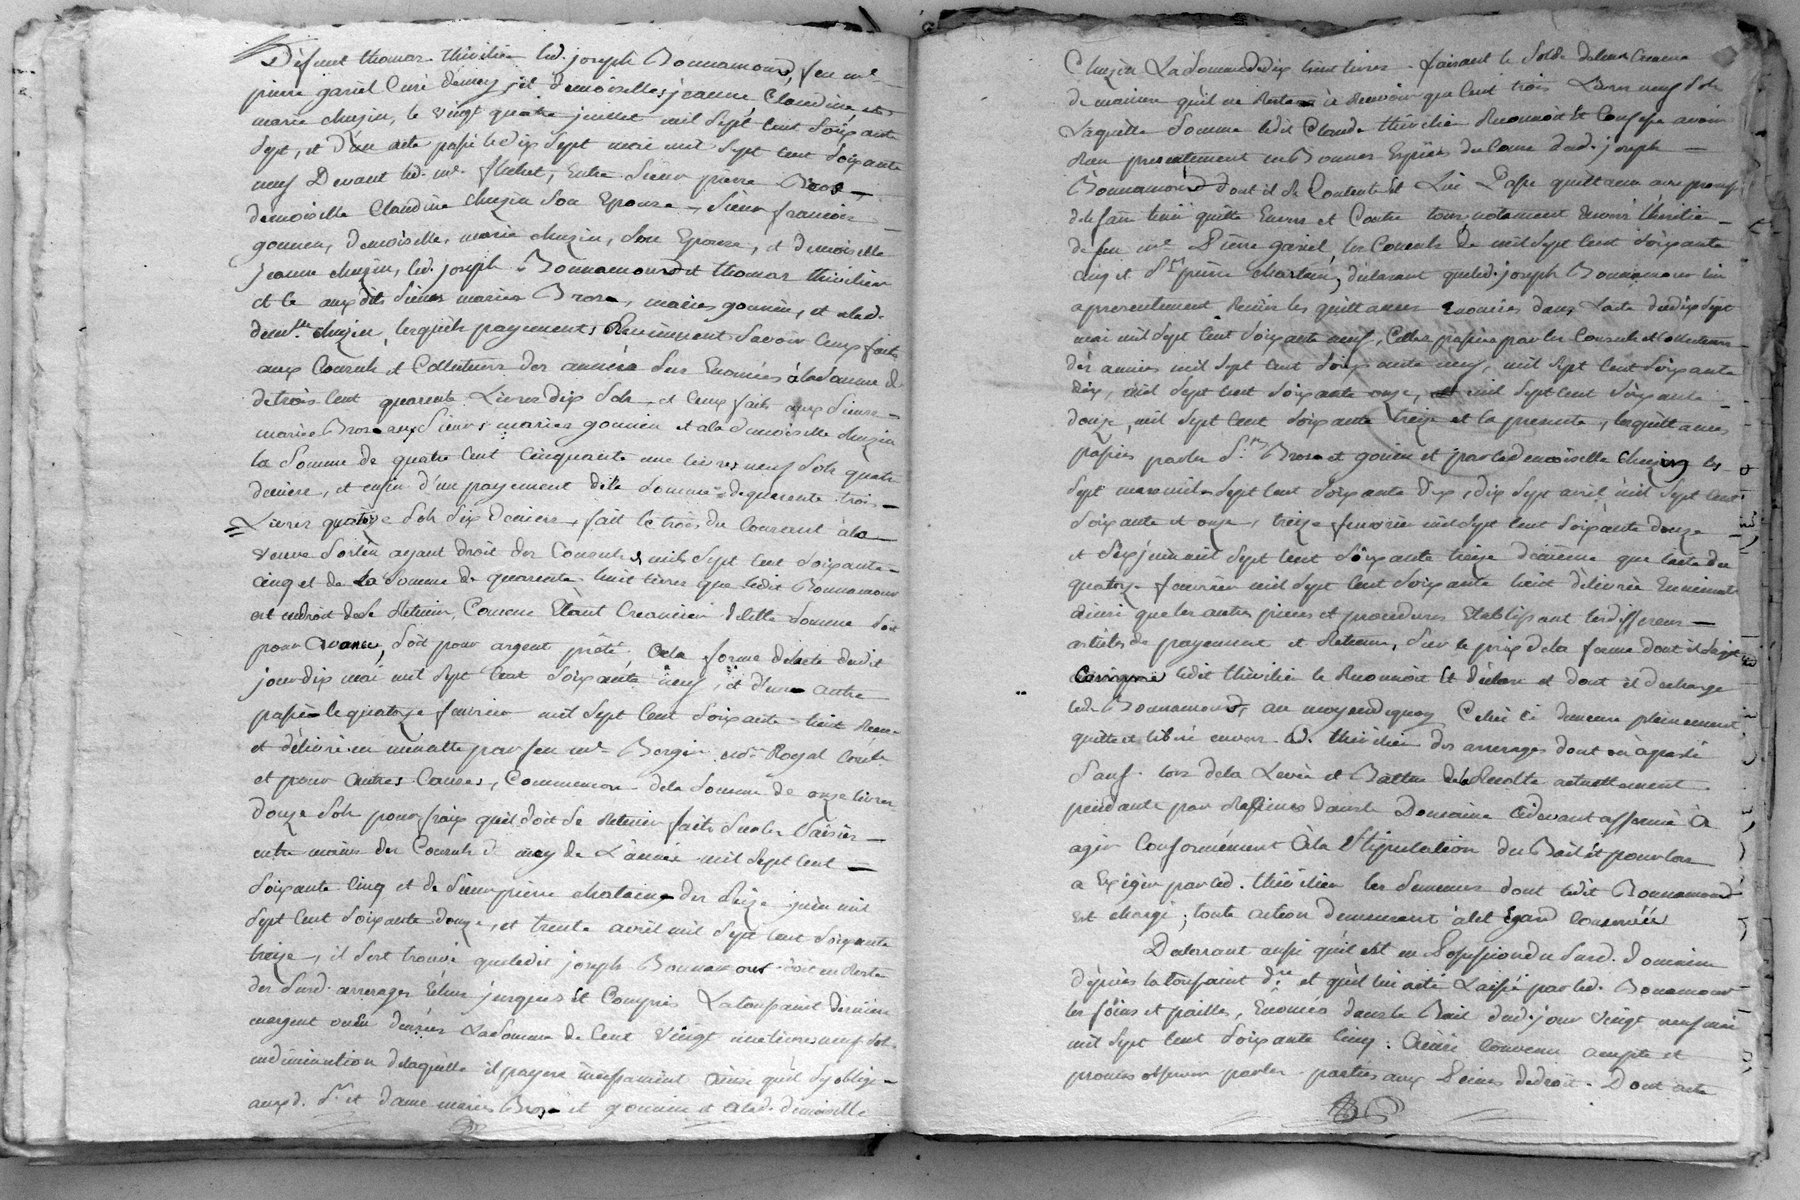 Defunt thomas thivilier led. joseph Bonnamour, feu me
pierre gariel Curé demey, et demoiselles jeanne Claudine et
marie chuzin, le vingt quatre juillet mil sept cent soixante
sept, et d'un acte passé le dix sept mai mil sept cent soixante
neuf Devant led. me. flachat, Entre sieur pierre Bros,
demoiselle Claudine chuzin son Epouse, sieur francois
gonnin, demoiselle, marie chuzin, son Epouse, et demoiselle
jeanne chuzin, led. joseph Bonnamour et thomas thivilier
et le auxdits sieurs mariés Brose, mariés gonnin, et alad.
demlle. chuzin, lesquels payements Reviennent savoir Ceux faits
aux Consuls et Collecteurs des années sus Enoncées à la somme de
de trois Cent quarente Livres dix sols, et Ceux faits aux sieurs
mariés Brose aux sieurs mariés gonnin et ala demoiselle chuzin
la somme de quatre Cent Cinquante une livres neuf sols quatre
deniers, et enfin d'un payement de la somme de quarente trois
Livres quatorze sols six deniers, fait le trois du Courant à la
veuve sorlin ayant droit des Consuls mil sept Cent soixante
Cinq et de la somme de quarente huit livres que ledit Bonnamour
est endroit de se Retenir, Comme Etant Creancier de lette somme soit
pour avance, soit pour argent prété, a la forme de lacte dudit
jour dix mai mil sept Cent soixante neuf, et d'une autre
passé le quatorze fevrier mil sept Cent soixante huit
et délivré en minutte par feu me Borgin, Royal
et pour autres Causes, Comme encore de la somme de onze livres
Douze sols pour fraix qu'il doit se Retenir faits sur les saisies
entre mains des Consuls de mey de L'année mil sept Cent
soixante Cinq et de sieur pierre chatain des seize juin mil
sept Cent soixante douze, et trente avril mil sept Cent soixante
treize, il s'est trouvé que ledit joseph Bonnamour doit en Reste
des susd. arrerages Echus jusques Et Compris La toussaint derniere
en argent ou en denrées La somme de Cent Vingt une livres neuf sols
en diminution de laquelle il payera incessament ainsi qu'il s'y oblige
auxd. srs. et dame mariés Brose et gonnin et alad. demoiselle
Chuzin La somme de dix huit livres faisant le solde de leur Creance
de maniere qu'il ne Reste à Recevoir que Cent trois Livres neuf sols
Laquelle somme ledit Claude thivilier Reconnoit Et Confesse avoir
Reçu presentement en Bonnes Espèces du Cours dud. joseph
Bonnamour dont il se Contente et Lui Passe quittance avec promesse
de le faire tenir quitte Envers et Contre tous notament
de feu me Pierre gariel les Consuls de mil sept Cent soixante
Cinq et sr. pierre chartain, declarant que led. joseph Bonnamour lui
a presentement Remis les quittances Enoncées dans L'acte du dix sept
mai mil sept Cent soixante neuf, Celles passées par les Consuls et Collecteurs
des années mil sept Cent soixante neuf, mil sept Cent soixante
dix, mil sept Cent soixante onze, mil sept Cent soixante
douze, mil sept Cent soixante treize et la presente, les quittances
passées par les srs. Brose et gonin et par la demoiselle Chuzin les
sept mars mil sept Cent soixante dix, dix sept avril mil sept Cent
soixante et onze, treize fevrier mil sept Cent soixante douze
et six juin mil sept Cent soixante treize de même que lacte du
quatorze fevrier mil sept Cent soixante huit délivrée en minutte
ainsi que les autres pieces et procedures Etablissant les differens
articles de payement et Retenue, sur le prix de la ferme dont il s'agit
ledit thivilier le Reconnoit Et déclare et dont il decharge
led. Bonnamour, au moyen de quoy Celui ci demeure pleinement
quitte et libéré envers led. thivilier des arrerages dont on a parlé
sauf lors de la Levée et Battue de la Récolte actuellement
pendante par Racines dans le Domaine Cidevant affermé à
agir Conformément à la stipulation du Bail Et pour lors
a Exiger par led. thivilier les semences dont ledit Bonnamour
est chargé; toute action demeurant à cet Egard Conservée
Declarant aussi qu'il est en possession du susd. Domaine
depuis la toussaint dre. et qu'il lui a été Laissé par led. Bonamour
les foins et pailles, Enoncés dans le Bail dud. jour vingt neuf mai
mil sept Cent soixante Cinq: Ainsi Convenu accepté et
promis observer par les parties aux Peines de droit. Dont acte